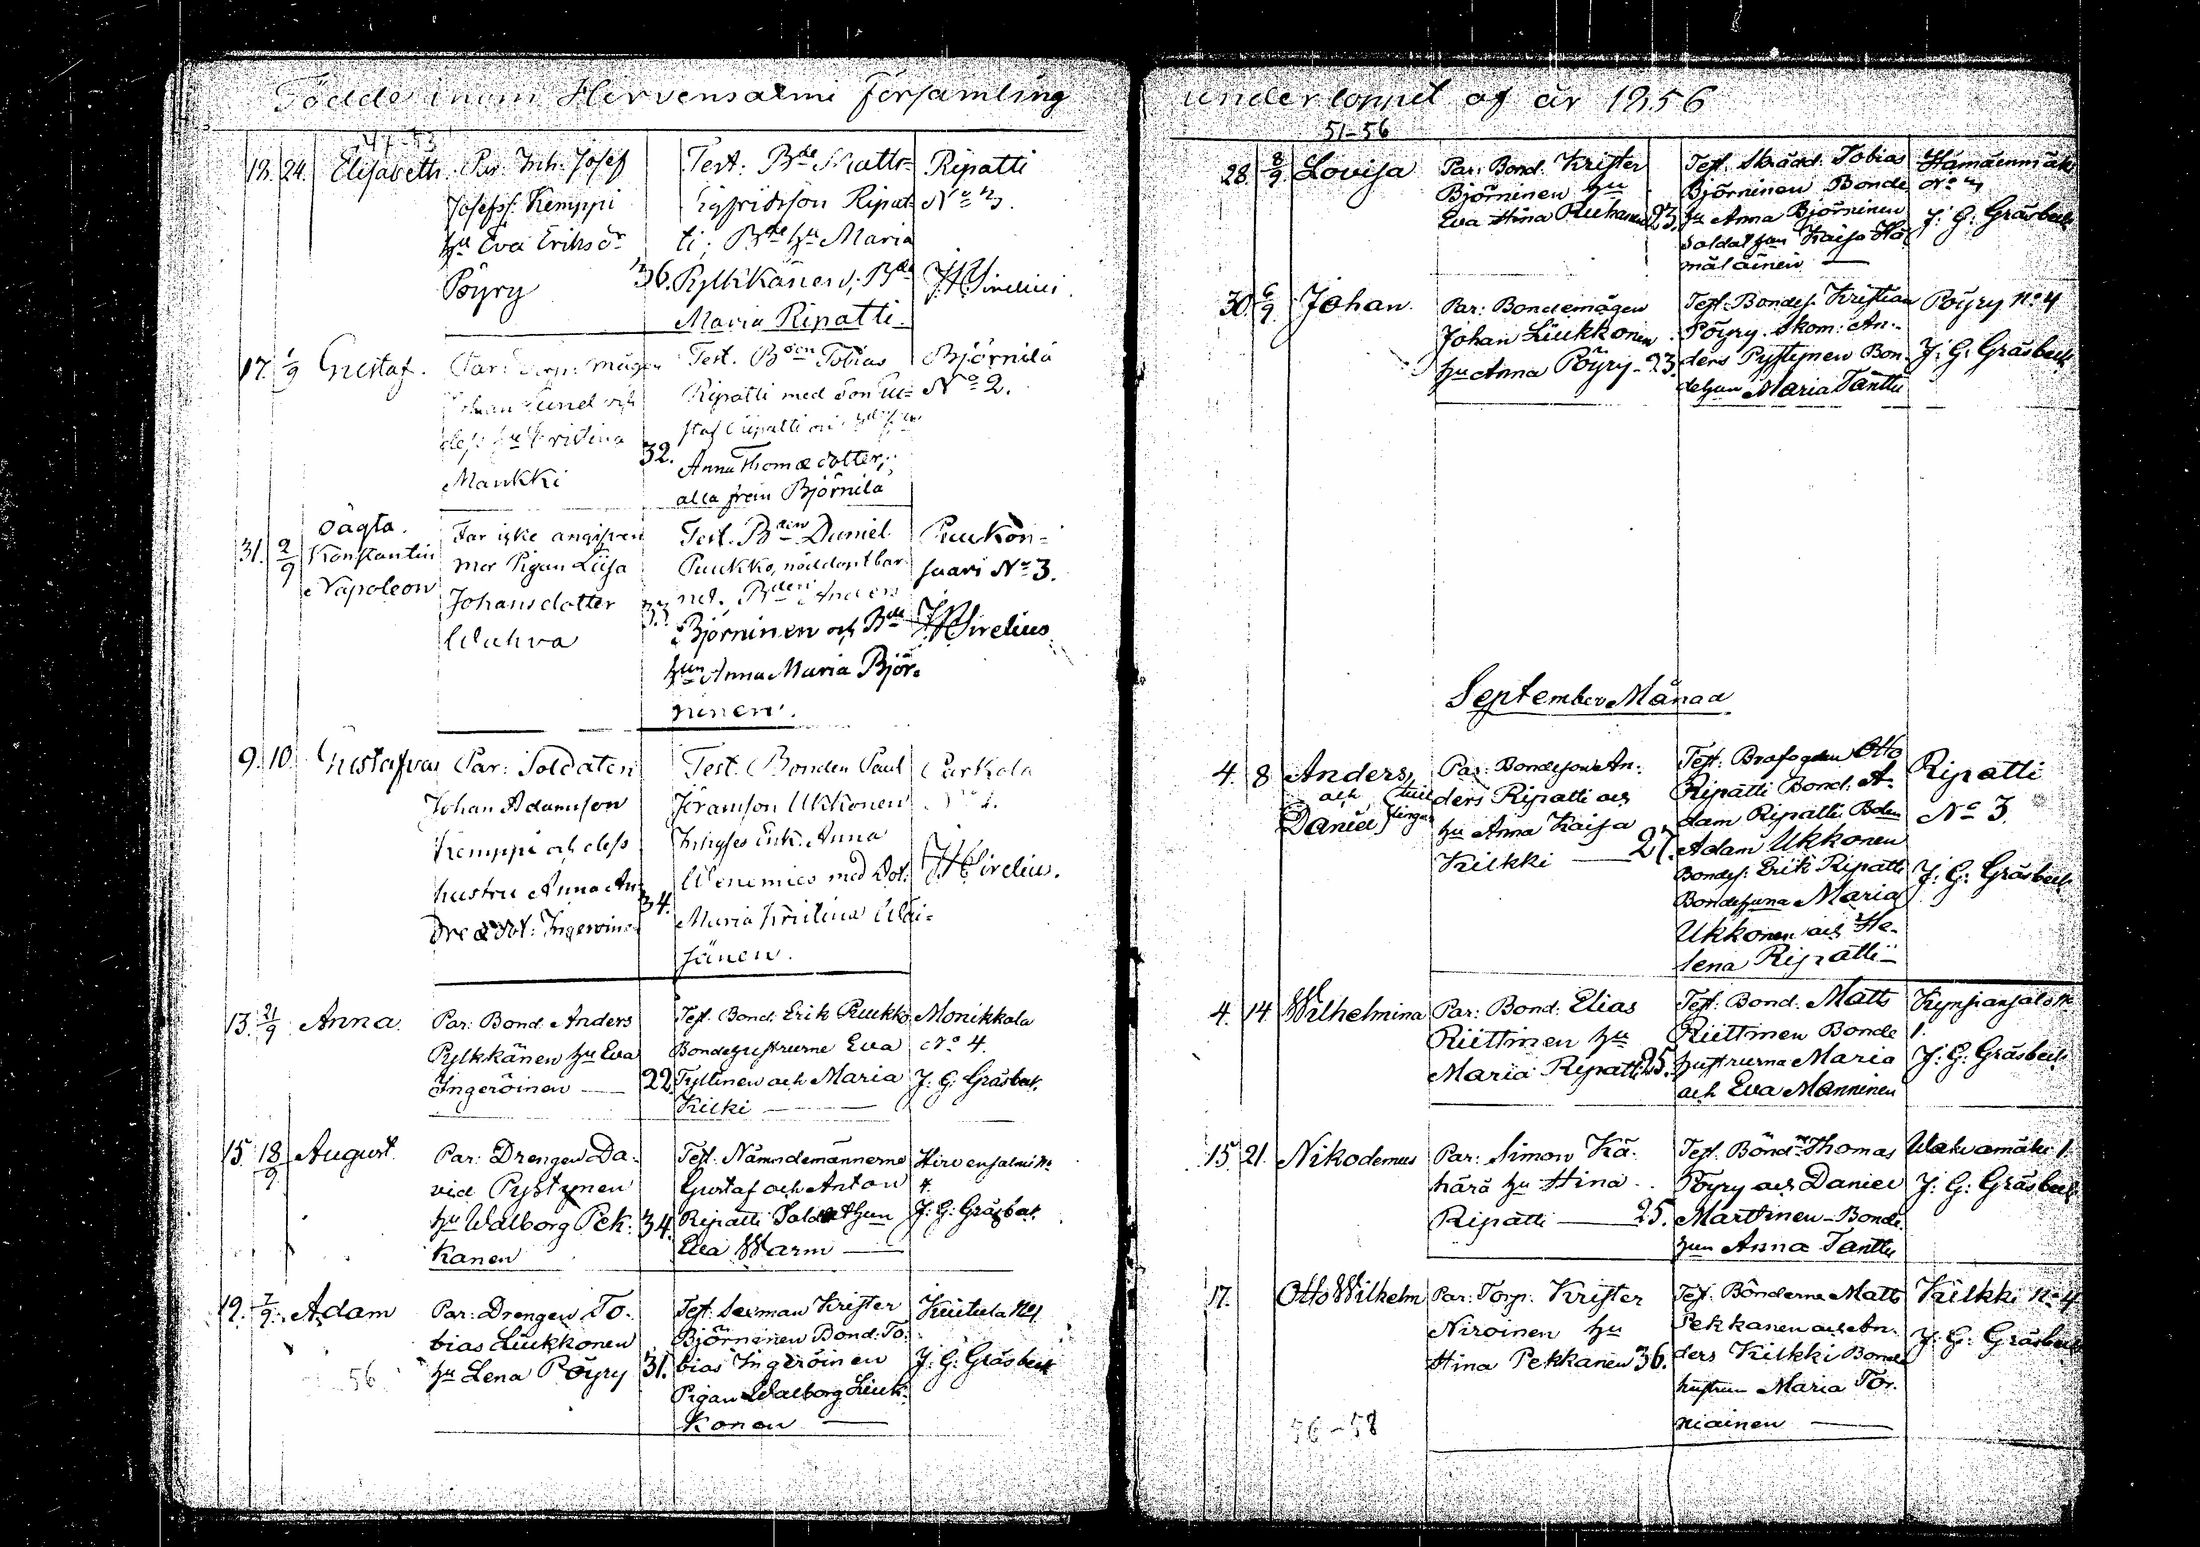 Födde inom Hirvensalmi församling
47-53
18. 24. Elisabeth
Par. Inh. Josef
Josefss. Kemppi
hu Eva Eriksdr
Pöyry
36.
Test: Bde Matts
Sigfridsson Ripat-
ti; Bde hu Maria
Pylkkänen; Bde
Maria Ripatti.
Ripatti
No 3.
J H Sirelius.
17. 1/9 Gustaf.
Par: Torp: mågen
Johan Lund och
dess hu Kristina
Maukki
32.
Test. Bden Tobias
Ripatti med Son Gu-
staf Ripatti
Anna Thomædotter;
alla från Björnilä
Björnilä
No 2.
31. 2/9
oägta.
Konstantin
Napoleon
Far icke angifven
mor Pigan Liisa
Johansdotter
Wahva
33.
Test. Bden Daniel
Puukko, nöddöpt bar-
net, Bden Anders
Björninen och Bde
hun Anna Maria Björ-
ninen.
Puukon-
saari No 3.
J H Sirelius.
9. 10. Gustafva
Par: Soldaten
Johan Adamsson
Kemppi och dess
hustru Anna An-
dreædot: Ingeroinen
34.
Test. Bonden Paul
Göransson Ukkonen
Inhyses Enk. Anna
med Dot:
Maria Kristina Wäi-
sänen.
Parkola
No 1.
J H Sirelius.
13. 21/9 Anna.
Par: Bond. Anders
Pylkkänen hu Eva
Ingeröinen —
22.
Test. Bond: Erik Puukko
Bondehustrurne Eva
Tyllinen och Maria
Kilki —
Monikkala
No 4.
J. G. Gråsbeck.
15 18/9 August.
Par: Drengen Da-
vid Pystynen
hu Walborg Pek-
kanen
34.
Test. Nämndemännerne
Gustaf och Anton
Ripatti Soldathun
Eva Warm —
Hirvensalmi No
4.
J. G. Gråsbeck.
19. 7/9. Adam
Par: Drengen To-
bias Liukkonen
hu Lena Pöyry
31.
Test. Sexman Krister
Björninen Bond: To-
bias Ingeröinen
Pigan Walborg Liuk-
konen —
Kuitula No 1.
J. G. Gråsbeck
56
under loppet af år 1856
51-56
28. 8/9. Lovisa
Par: Bond. Krister
Björninen hu
Eva Stina Puuhanen
23.
Test. Skrädd. Tobias
Björninen Bonde
hu Anna Björninen
Soldathun Kaisa Hä-
mäläinen —
Hämäenmäki
No 3
J. G. Gråsbeck
30. 6/9. Johan.
Par: Bondemågen
Johan Liukkonen
hu Anna Pöyry —
23.
Test. Bondes. Kristian
Pöyry. Skom: An-
ders Pystynen Bon-
dehun Maria Tanttu
Pöyry No 4
J. G. Gråsbeck
September Månad
4. 8 Anders,
och
Daniel
tvil
lingar
Par: Bondeson An-
ders Ripatti och
hu Anna Kaisa
Kilkki —
27.
Test. Brofogden Otto
Ripatti Bond. A-
dam Ripatti. Bden
Adam Ukkonen
Bondes: Erik Ripatti
Bondehuna Maria
Ukkonen och He-
lena Ripatti —
Ripatti
No 3.
J. G. Gråsbeck
4. 14 Wilhelmina
Par: Bond: Elias
Riittinen hu
Maria Ripatti
25.
Test. Bond. Matts
Riittinen Bonde
hustrurna Maria
och Eva Manninen
Kynsiansalo No
1.
J. G. Gråsbeck
15 21. Nikodemus
Par: Simon Kä-
härä hu Stina
Ripatti —
25.
Test. Bönd. Thomas
Pöyry och Daniel
Marttinen - Bonde
hun Anna Tanttu
Wahvamäki 1.
J. G. Gråsbeck
17. Otto Wilhelm
Par: Torp. Krister
Niroinen hu
Stina Pekkanen
36.
Test. Bönderne Matts
Pekkanen och An-
ders Kilkki Bonde
hustrun Maria Tor-
niainen —
Kilkki No 4
J. G. Gråsbeck
56-58